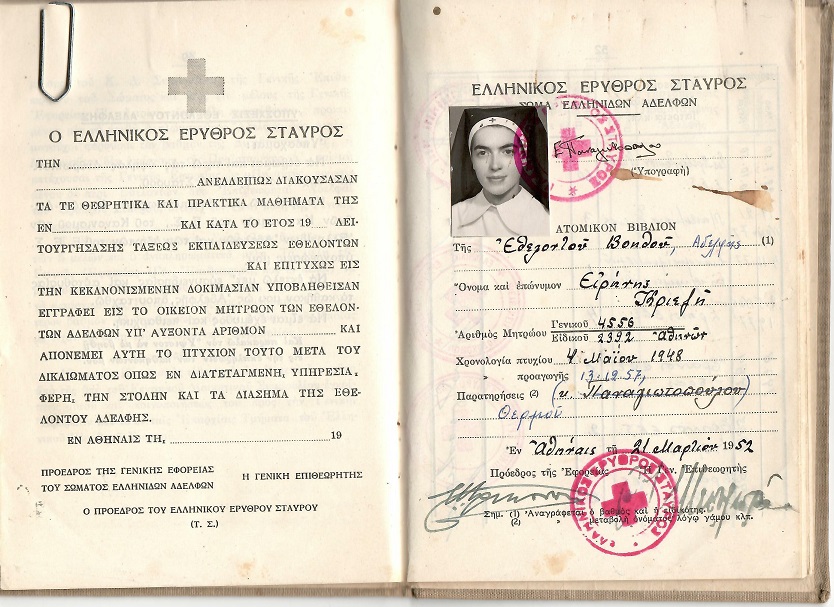 Ο ΕΛΛΗΝΙΚΟΣ ΕΡΥΘΡΟΣ ΣΤΑΥΡΟΣ
ΤΗΝ
ΑΝΕΛΛΕΙΠΩΣ ΔΙΑΚΟΥΣΑΣΑΝ
ΤΑ ΤΕ ΘΕΩΡΗΤΙΚΑ ΚΑΙ ΠΡΑΚΤΙΚΑ ΜΑΘΗΜΑΤΑ ΤΗΣ
ΕΝ ΚΑΙ ΚΑΤΑ ΤΟ ΕΤΟΣ 19 ΛΕΙ-
ΤΟΥΡΓΗΣΑΣΗΣ ΤΑΞΕΩΣ ΕΚΠΑΙΔΕΥΣΕΩΣ ΕΘΕΛΟΝΤΩΝ
ΚΑΙ ΕΠΙΤΥΧΩΣ ΕΙΣ
ΤΗΝ ΚΕΚΑΝΟΝΙΣΜΕΝΗΝ ΔΟΚΙΜΑΣΙΑΝ ΥΠΟΒΛΗΘΕΙΣΑΝ
ΕΓΓΡΑΦΕΙ ΕΙΣ ΤΟ ΟΙΚΕΙΟΝ ΜΗΤΡΩΟΝ ΤΩΝ ΕΘΕΛΟΝ-
ΤΩΝ ΑΔΕΛΦΩΝ ΥΠ' ΑΥΞΟΝΤΑ ΑΡΙΘΜΟΝ ΚΑΙ
ΑΠΟΝΕΜΕΙ ΑΥΤΗ ΤΟ ΠΤΥΧΙΟΝ ΤΟΥΤΟ ΜΕΤΑ ΤΟΥ
ΔΙΚΑΙΩΜΑΤΟΣ ΟΠΩΣ ΕΝ ΔΙΑΤΕΤΑΓΜΕΝΗ, ΥΠΗΡΕΣΙΑ,
ΦΕΡΗ, ΤΗΝ ΣΤΟΛΗΝ ΚΑΙ ΤΑ ΔΙΑΣΗΜΑ ΤΗΣ ΕΘΕ-
ΛΟΝΤΟΥ ΑΔΕΛΦΗΣ.
ΕΝ ΑΘΗΝΑΙΣ ΤΗ, 19
ΠΡΟΕΔΡΟΣ ΤΗΣ ΓΕΝΙΚΗΣ ΕΦΟΡΕΙΑΣ
ΤΟΥ ΣΩΜΑΤΟΣ ΕΛΛΗΝΙΔΩΝ ΑΔΕΛΦΩΝ
Η ΓΕΝΙΚΗ ΕΠΙΘΕΩΡΗΤΗΣ
Ο ΠΡΟΕΔΡΟΣ ΤΟΥ ΕΛΛΗΝΙΚΟΥ ΕΡΥΘΡΟΥ ΣΤΑΥΡΟΥ
(Τ. Σ.)
ΕΛΛΗΝΙΚΟΣ ΕΡΥΘΡΟΣ ΣΤΑΥΡΟΣ
ΣΩΜΑ ΕΛΛΗΝΙΔΩΝ ΑΔΕΛΦΩΝ
(Ὑπογραφὴ)
ΑΤΟΜΙΚΟΝ ΒΙΒΛΙΟΝ
Τῆς Ἐθελοντοῦ Βοηθοῦ, Ἀδελφῆς (1)
Ὄνομα καὶ ἐπώνυμον Εἰρήνης
Κριεζῆ
Ἀριθμὸς Μητρώου Γενικοῦ 4556
Εἰδικοῦ 2392 Ἀθηνῶν
Χρονολογία πτυχίου 4 Μαΐου 1948
» προαγωγῆς 13-12-57,
Παρατηρήσεις (2) (κ. Παναγιωτοπούλου)
Θερμοῦ
Ἐν Ἀθήναις τῇ 21 Μαρτίου 1952
Πρόεδρος τῆς Ἐφορείας Ἡ Γεν. Ἐπιθεωρητὴς
Σημ. (1) Ἀναγράφεται ὁ βαθμὸς καὶ ἡ εἰδικότης.
(2) » μεταβολὴ ὀνόματος λόγῳ γάμου κλπ.
ΕΛΛΗΝΙΚΟΣ ΕΡΥΘΡΟΣ ΣΤΑΥΡΟΣ